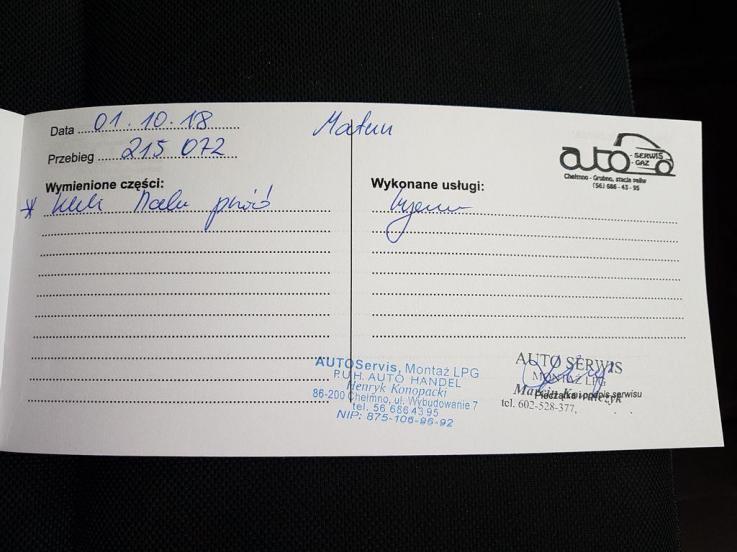 Data 01.10.18
Przebieg 215 072
auto SERWIS GAZ
Chełmno - Grubno, stacja paliw
(56) 686 - 43 - 95
Wymienione części:
Wykonane usługi:
AUTOServis, Montaż LPG
P.U.H. AUTO HANDEL
Henryk Konopacki
86-200 Chełmno, ul. Wybudowanie 7
tel. 56 686 43 95
NIP: 875-106-96-92
AUTO SERWIS
MONTAŻ LPG
Marcin
Pieczątka i podpis serwisu
tel. 602-528-377,